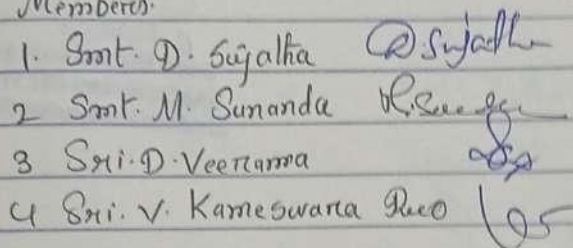 Members.
1. Smt. D. Sujatha D. Sujath
2 Smt. M. Sunanda
3 Sri. D. Veeranna
4 Sri. V. Kameswara Rao